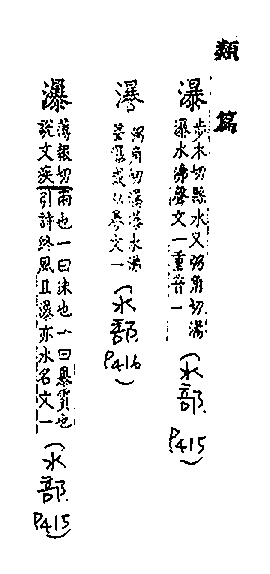 類篇
瀑
步木切縣水又弼角切瀑
瀑水沸聲文一重音一
(水部 P415)
弼角切水沸
或从文一
(水部 P416)
瀑
薄報切雨也一曰沫也一曰暴霣也
說文疾引詩終風且瀑亦水名文一
(水部 P415)